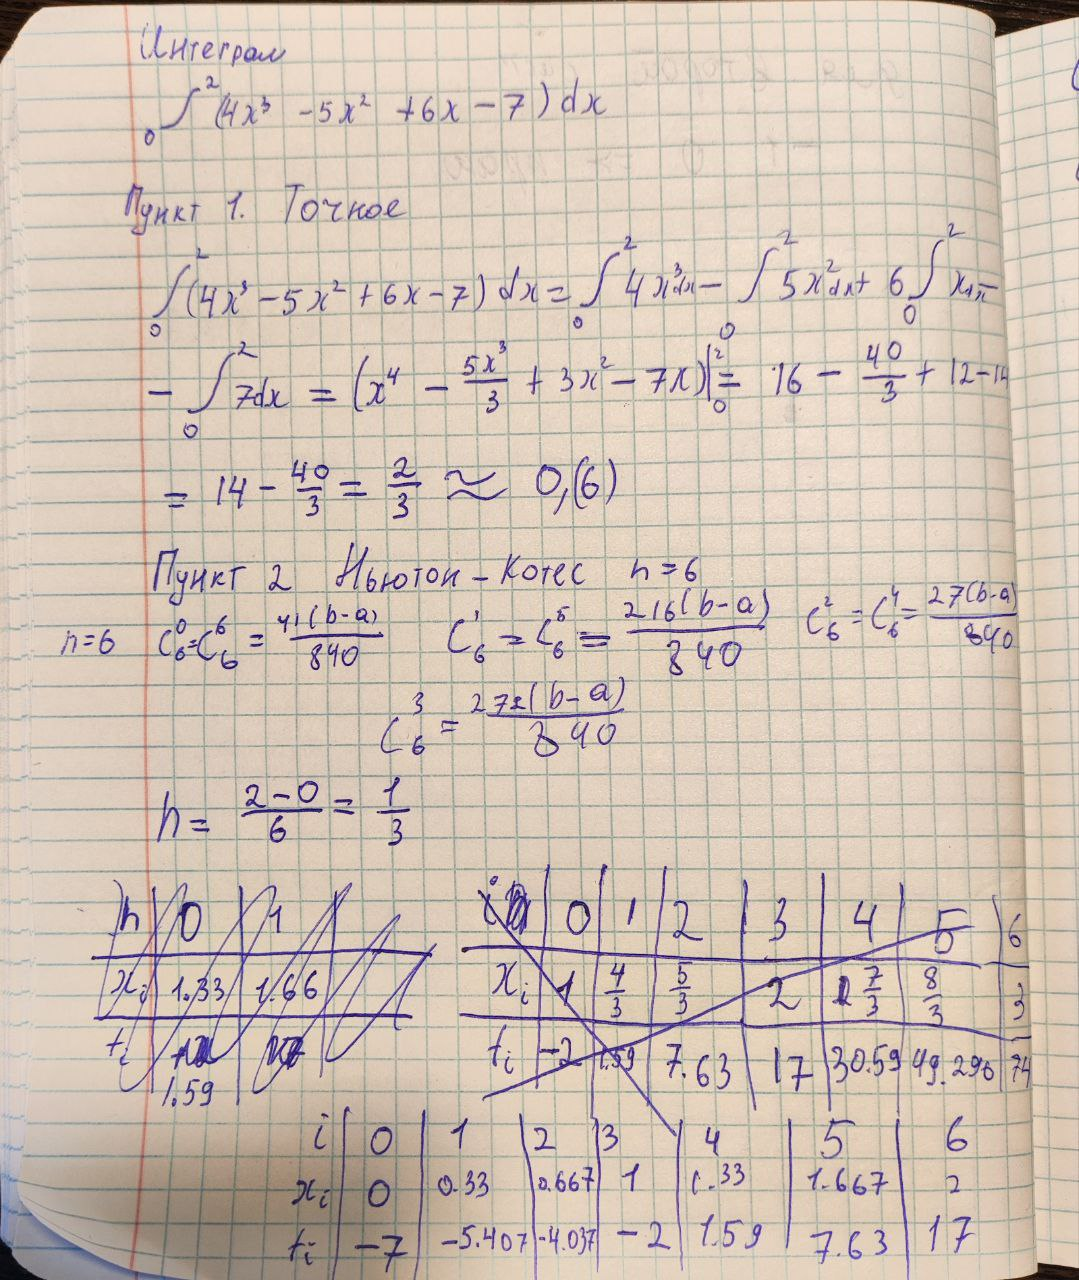 Интеграл
∫₀² (4x³ - 5x² + 6x - 7) dx
Пункт 1. Точное
∫₀² (4x³ - 5x² + 6x - 7) dx = ∫₀² 4x³dx - ∫₀² 5x²dx + 6 ∫₀² xdx -
- ∫₀² 7dx = (x⁴ - 5x³/3 + 3x² - 7x)|₀² = 16 - 40/3 + 12 - 14
= 14 - 40/3 = 2/3 ≈ 0,(6)
Пункт 2 Ньютон - Котес n=6
n=6 C₆⁰ = C₆⁶ = 41(b-a)/840 C₆¹ = C₆⁵ = 216(b-a)/840 C₆² = C₆⁴ = 27(b-a)/840
C₆³ = 272(b-a)/840
h = (2-0)/6 = 1/3
n 0 1
xᵢ 1.33 1.66
fᵢ
1.59
i 0 1 2 3 4 5 6
xᵢ 1 4/3 5/3 2 7/3 8/3 3
fᵢ -2 1.59 7.63 17 30.59 49.296 74
i 0 1 2 3 4 5 6
xᵢ 0 0.33 0.667 1 1.33 1.667 2
fᵢ -7 -5.407 -4.037 -2 1.59 7.63 17